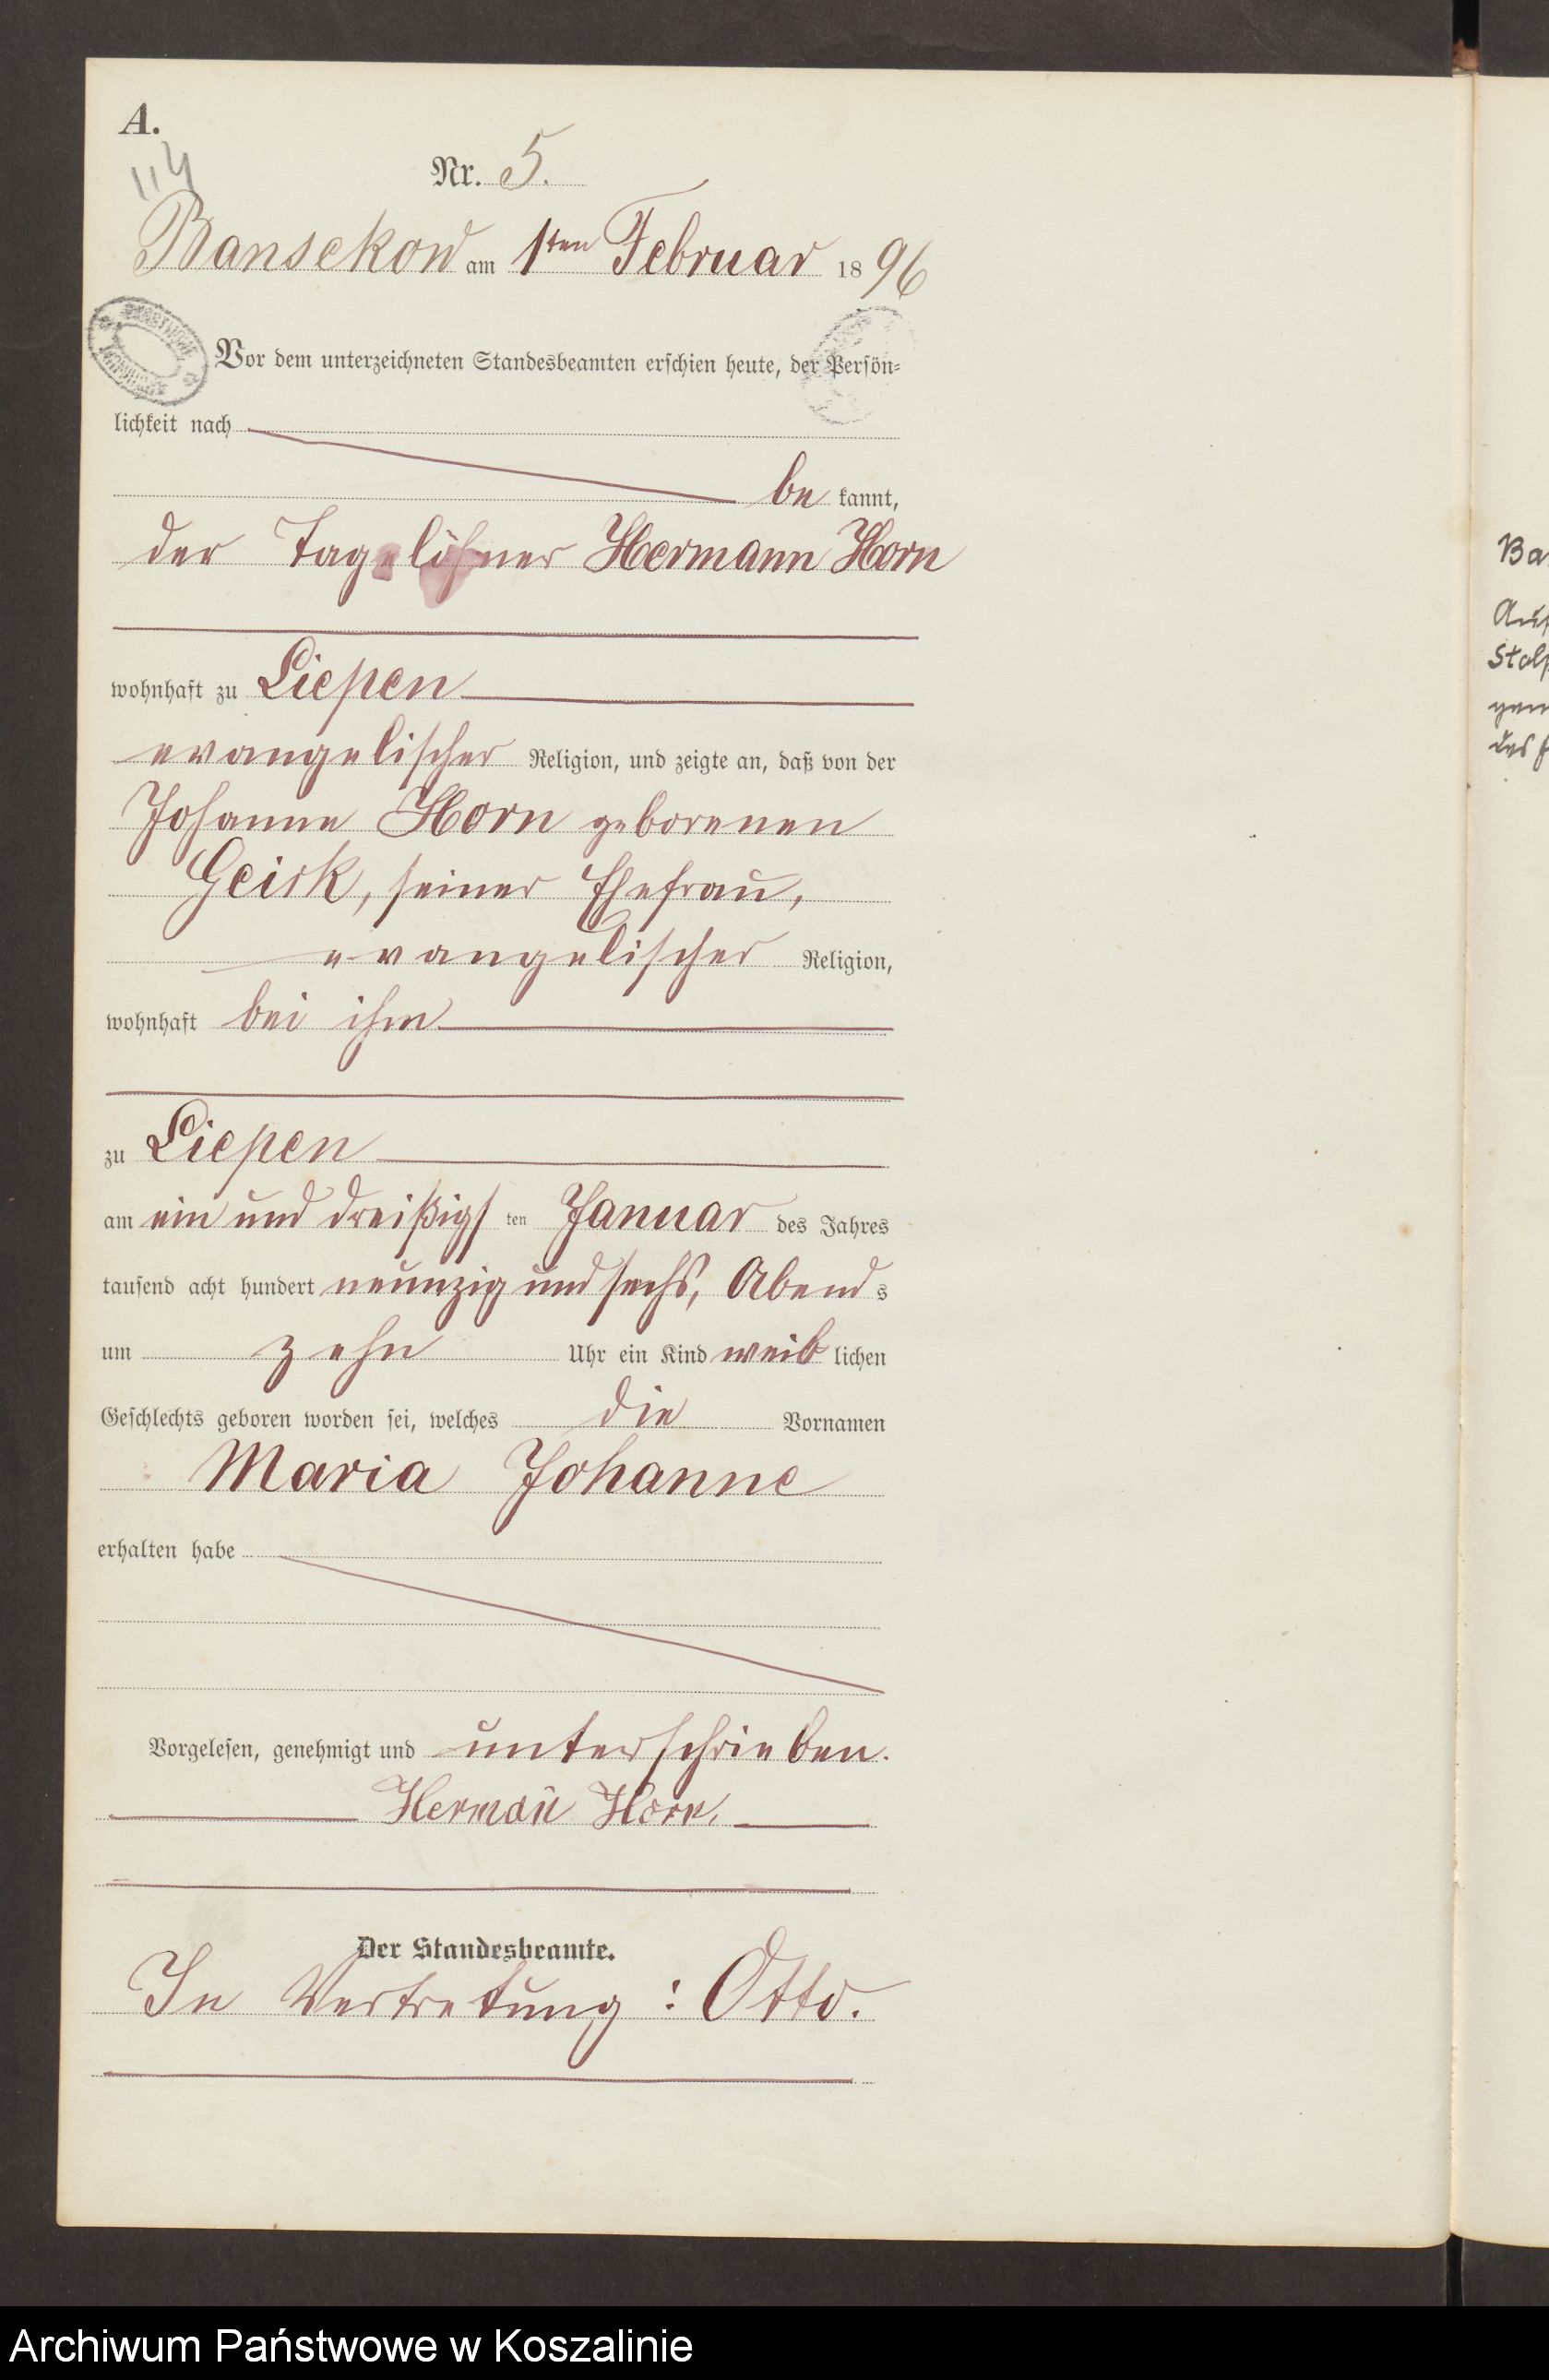 A.
114
Nr. 5.
Bansekow am 1ten Februar 1896
Vor dem unterzeichneten Standesbeamten erschien heute, der Persön-
lichkeit nach
be kannt,
der Tagelöhner Hermann Horn
wohnhaft zu Liepen
evangelischer Religion, und zeigte an, daß von der
Johanne Horn geborenen
Geisk, seiner Ehefrau,
evangelischer Religion,
wohnhaft bei ihm
zu Liepen
am ein und dreißigs ten Januar des Jahres
tausend acht hundert neunzig und sechs, Abend s
um zehn Uhr ein Kind weib lichen
Geschlechts geboren worden sei, welches die Vornamen
Maria Johanne
erhalten habe
Vorgelesen, genehmigt und unterschrieben.
Hermañ Horn.
Der Standesbeamte.
In Vertretung: Otto.
Archiwum Państwowe w Koszalinie